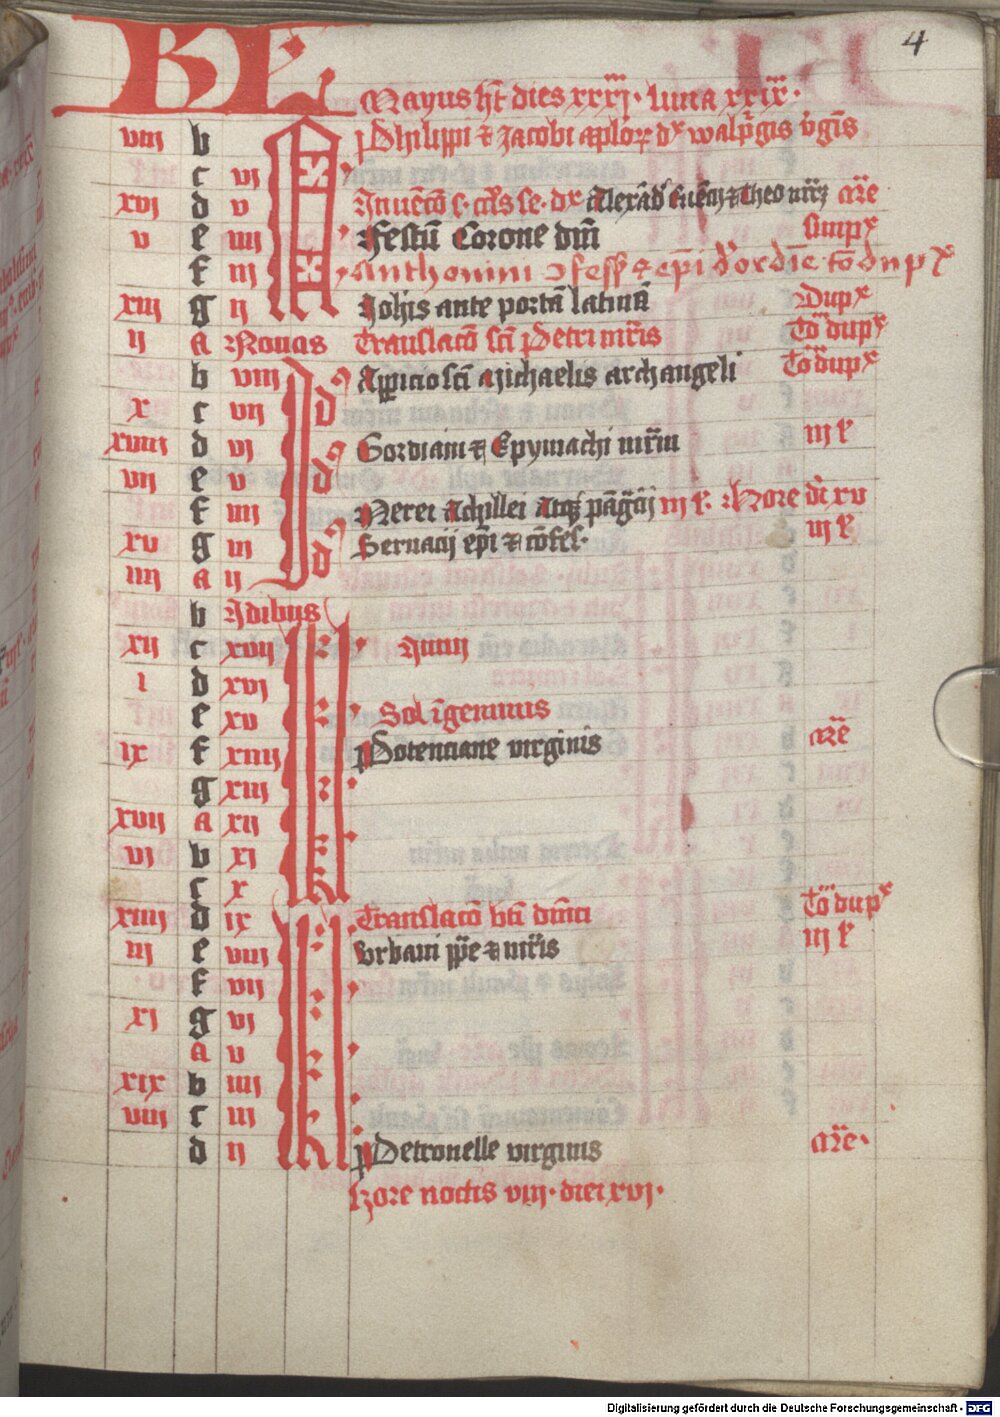 4
KL Mayus ht dies xxxj. luna xxix.
viij b Philippi & Jacobi aplor dx walpgis vgis
c vj
xvj d v Inuēcō s. crs se. dx Alexādr euēcij & theo mrz cōe
v e iiij Festū Corone dm̄i simpx
f iij Anthonini 9fess & epi
xiij g ij Johis ante portā latinā Dupx
ij a Nonas Translacō sci Petri mr̄is To dupx
b viij Id9 Appicio sci Michaelis archangeli To dupx
x c vij
xviij d vj Id9 Gordiani & Epymachi mrm iij l
vij e v
f iiij Nerei Achillei Atqz pāgcij iij l. Hore di xv
xv g iij Id9 Seruacij epi & cōfes. iij l
iiij a ij
b Idibus
xij c xvij Junij
i d xvj
e xv Sol i geminis
ix f xiiij Potenciane virginis
g xiij
xvij a xij
vj b xj
c x
xiiij d ix Translacō bti dm̄ici To dupx
iij e viij Vrbani ppe & mr̄is iij l
f vij
xj g vj
a v
xix b iiij
viij c iij
d ij Petronelle virginis
Hore noctis viij. diei xvj.
Digitalisierung gefördert durch die Deutsche Forschungsgemeinschaft - DFG